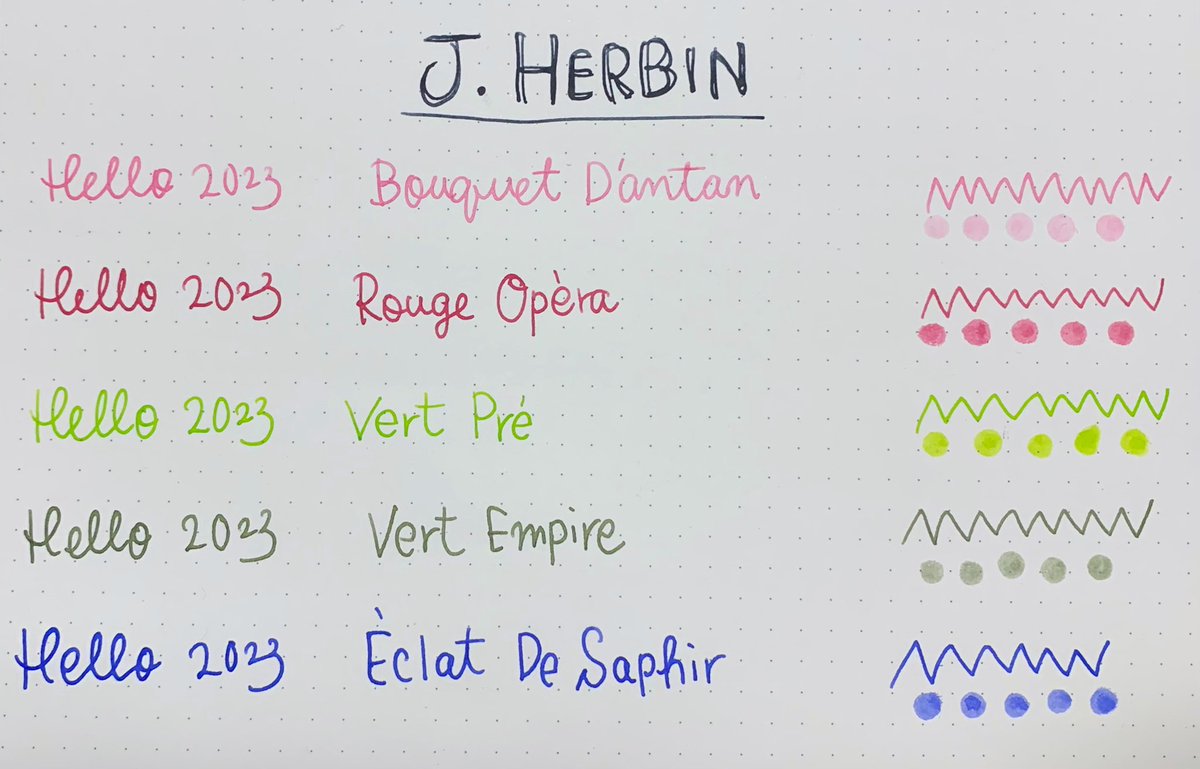 J. HERBIN
Hello 2023 Bouquet D'antan
Hello 2023 Rouge Opèra
Hello 2023 Vert Pré
Hello 2023 Vert Empire
Hello 2023 Èclat De Saphir